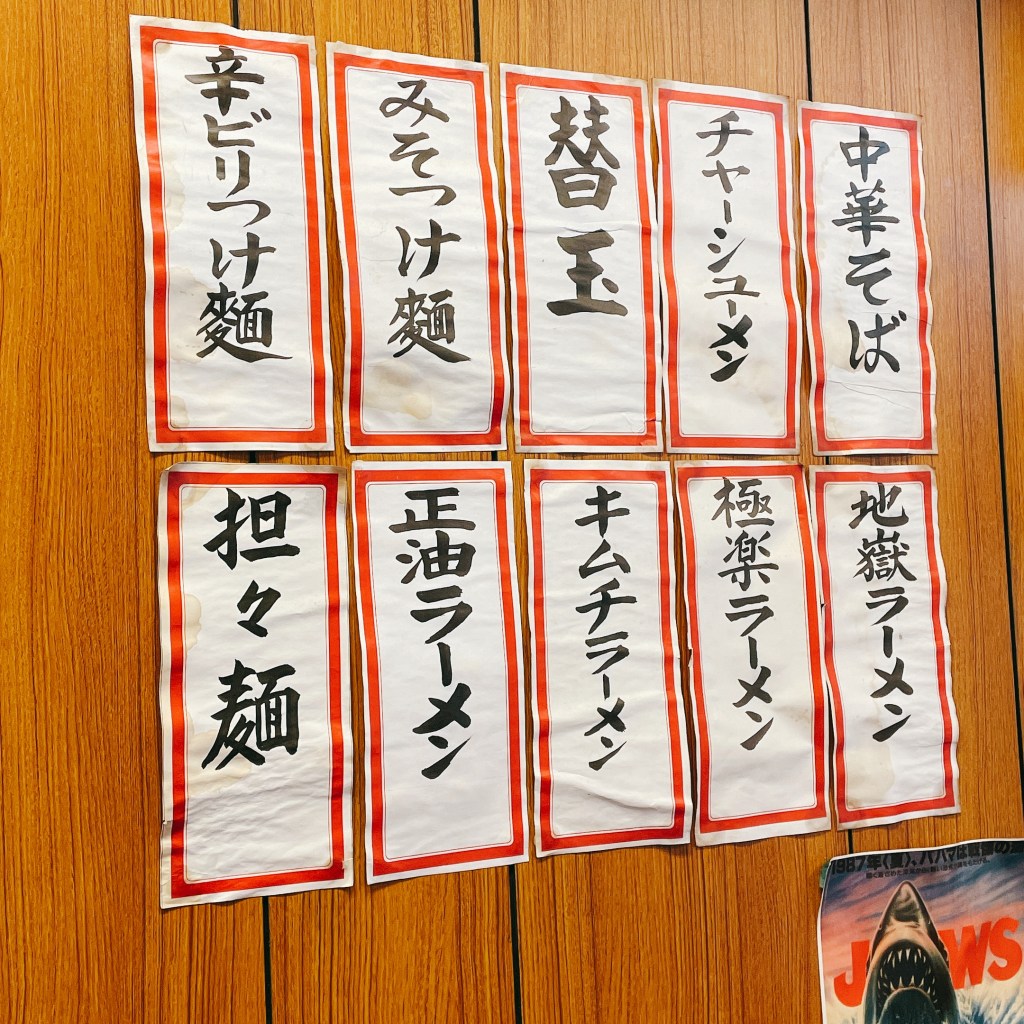 中華そば
チャーシューメン
替玉
みそつけ麵
辛ビリつけ麵
地嶽ラーメン
極楽ラーメン
キムチラーメン
正油ラーメン
担々麺
1987年〈夏〉、パパは
JAWS